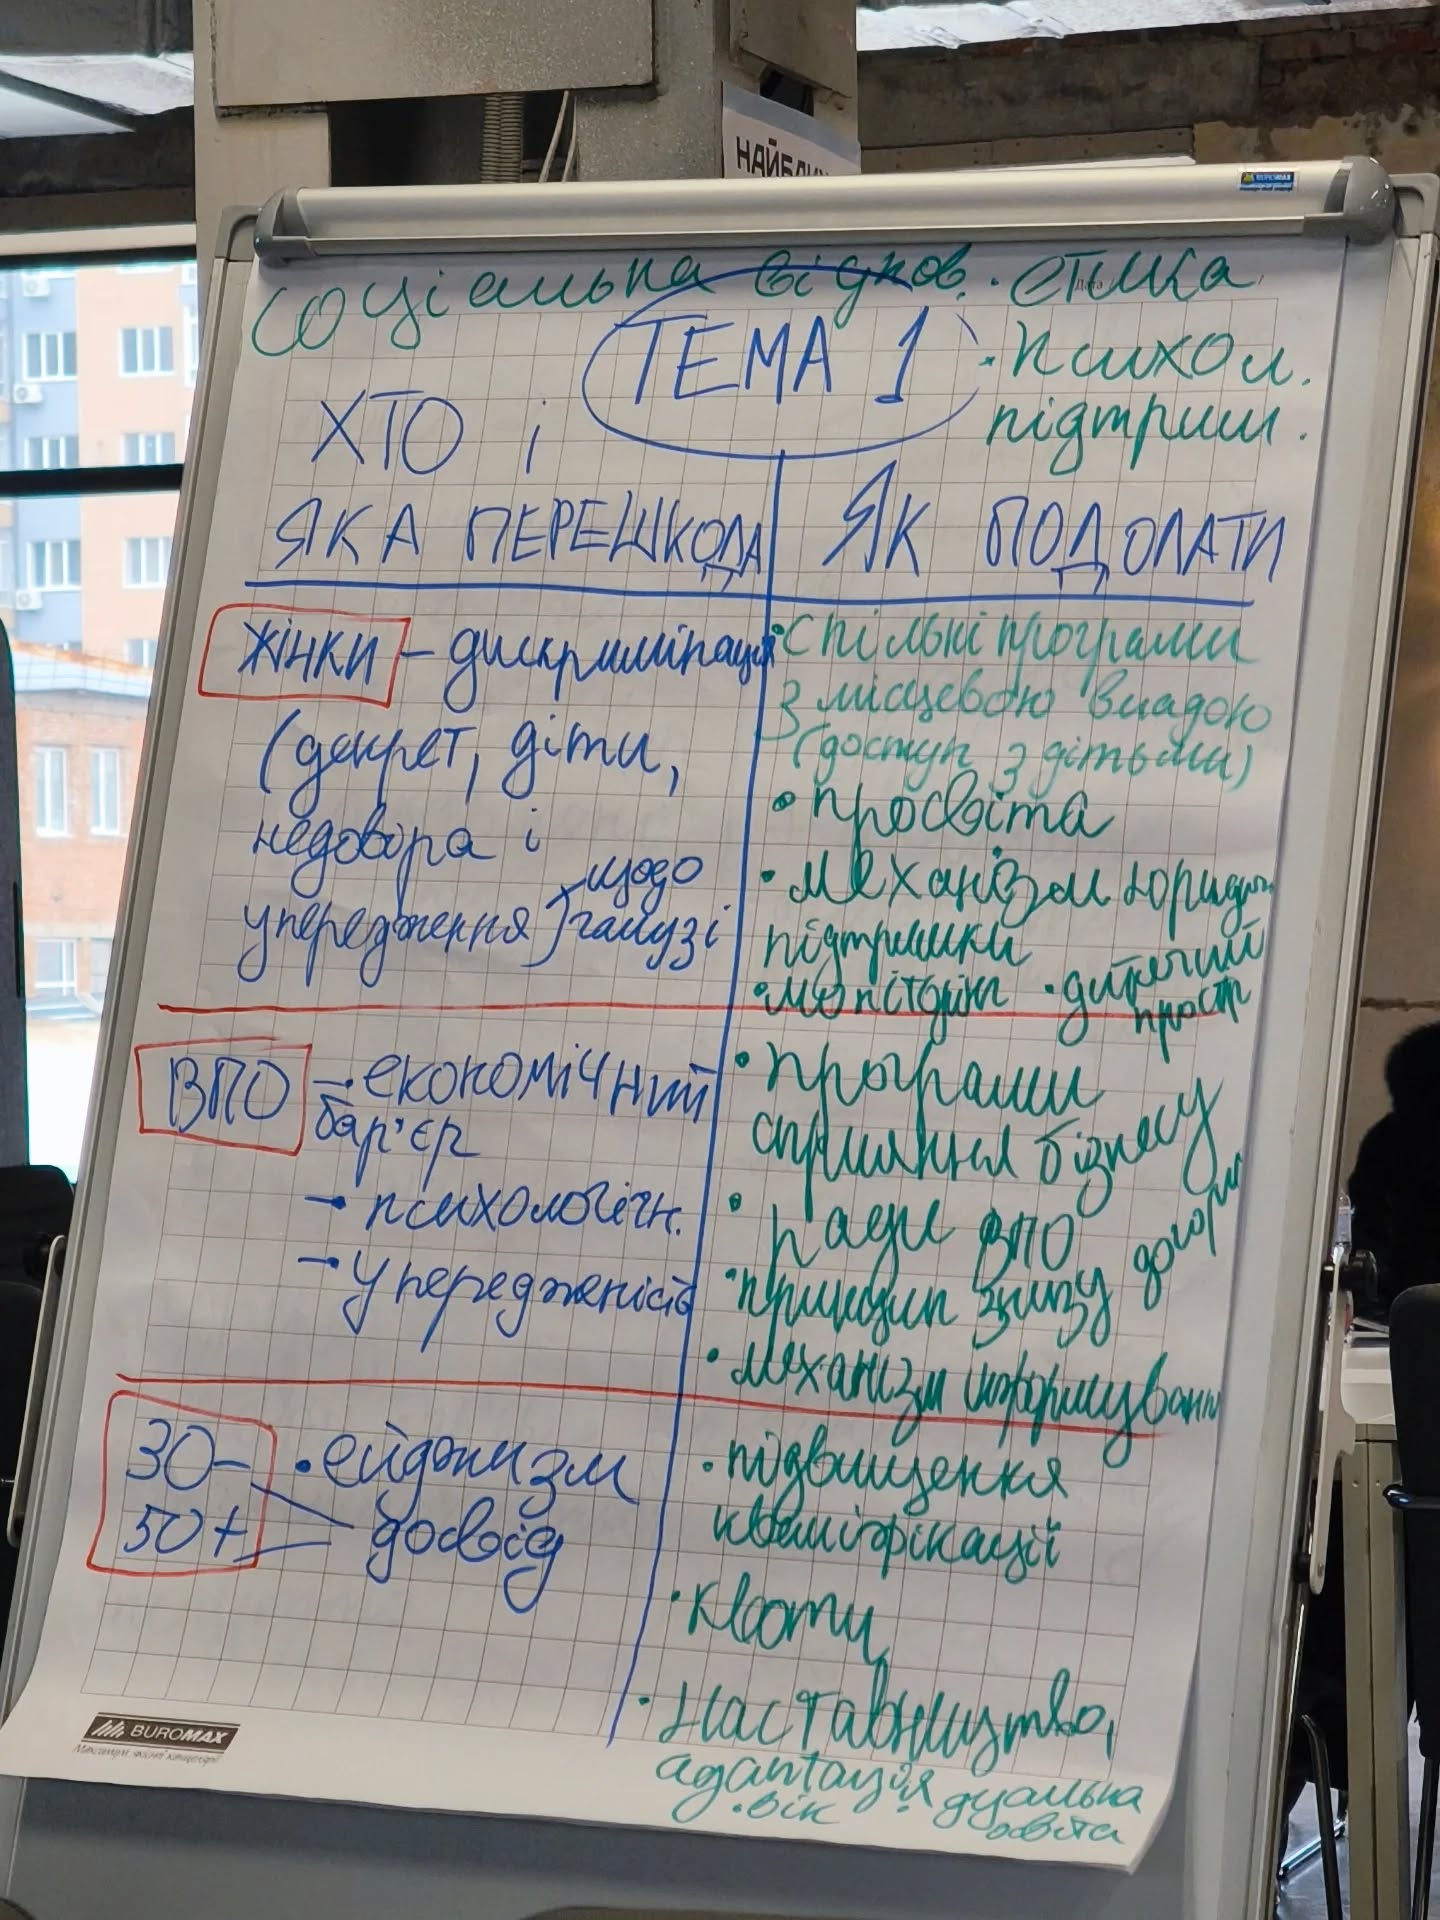 НАЙБЛИ
BUROMAX
Соціальна віднов. · етика
ТЕМА 1
· психол.
підтрим.
ХТО і
ЯКА ПЕРЕШКОДА
ЯК ПОДОЛАТИ
ЖІНКИ – дискримінація
(декрет, діти,
недовіра і
упередження) щодо
галузі
· Спільні програми
з місцевою владою
(доступ з дітьми)
· просвіта
· механізм юридичн
підтримки
· моніторинг · дитячий
простр
ВПО – економічний
бар'єр
– психологічн.
– упередженість
· програми
сприяння бізнесу
· Ради ВПО
· принцип знизу догори
· механізм інформування
30–
50+
· ейджизм
досвід
· підвищення
кваліфікації
· квоти
· наставництво,
адаптація · дуальна
освіта
· вік
BUROMAX
Максимум якісної канцелярії